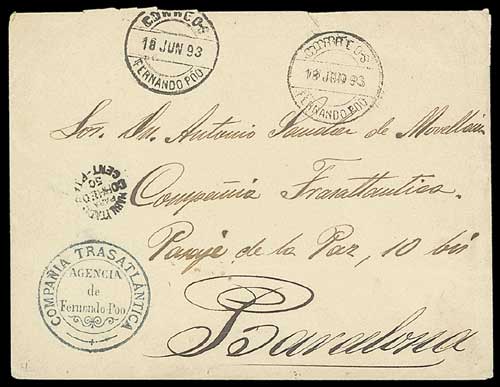 CORREOS
18 JUN 93
FERNANDO POO
CORREOS
18 JUN 93
FERNANDO POO
Sor. Dn. Antonio de
Compañia Trasatlantica
Pasaje de la Paz, 10 bis
Barcelona
50
CENT. PTA
COMPAÑIA TRASATLÁNTICA
AGENCIA
de
Fernando Poo